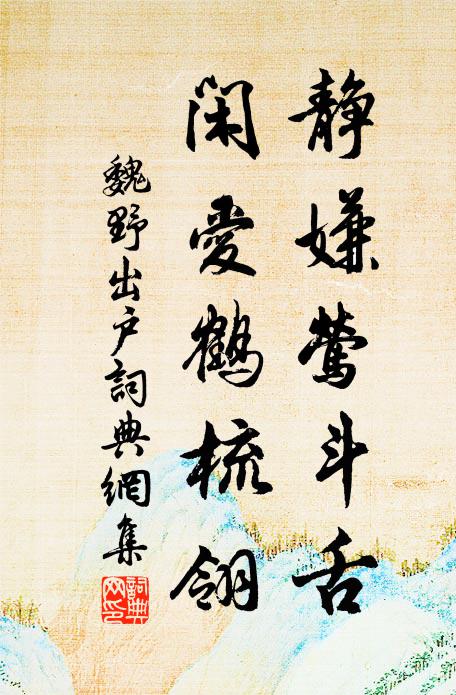 静嫌莺斗舌
闲爱鹤梳翎
魏野出户詞典網集
詞典